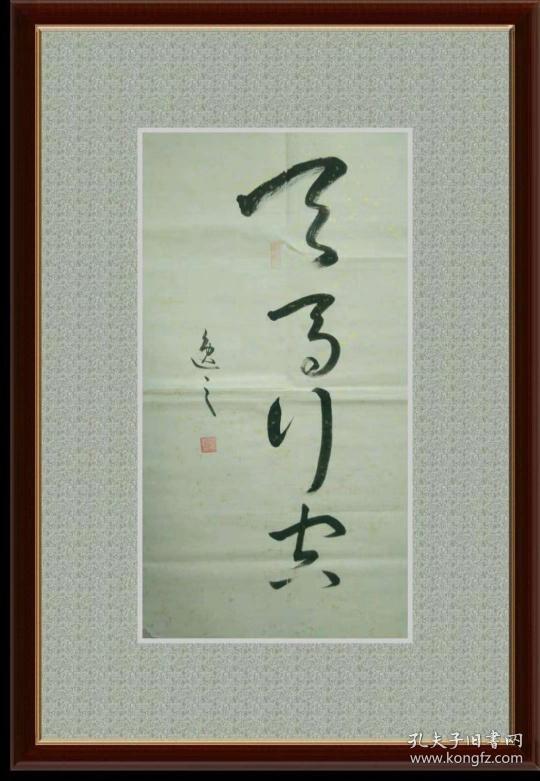 天马行空
逸之
孔夫子旧书网
www.kongfz.com